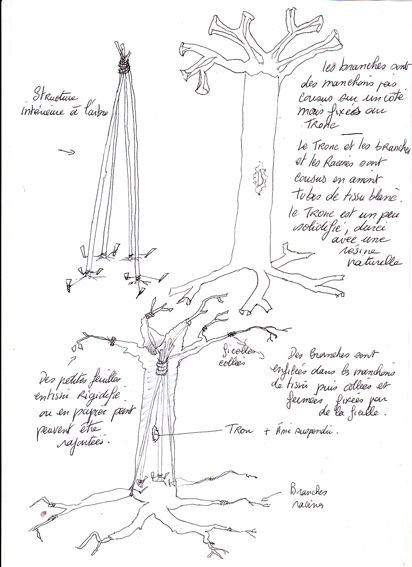 Structure
intérieure à l'arbre
les branches sont
des manchons pas
cousus sur un côté
mais fixées au
Tronc
Le Tronc et les branches
et les Racines sont
cousus en amont
tubes de tissu blanc.
le Tronc est un peu
solidifié, durci
avec une
résine
naturelle
ficelles
collées
Des petites feuilles
en tissu Rigidifié
ou en papier peint
peuvent être
rajoutées.
Des Branches sont
enfilées dans les manchons
de tissu puis collées et
fermées, fixées par
de la ficelle.
Trou + suspendu.
Branches
racines